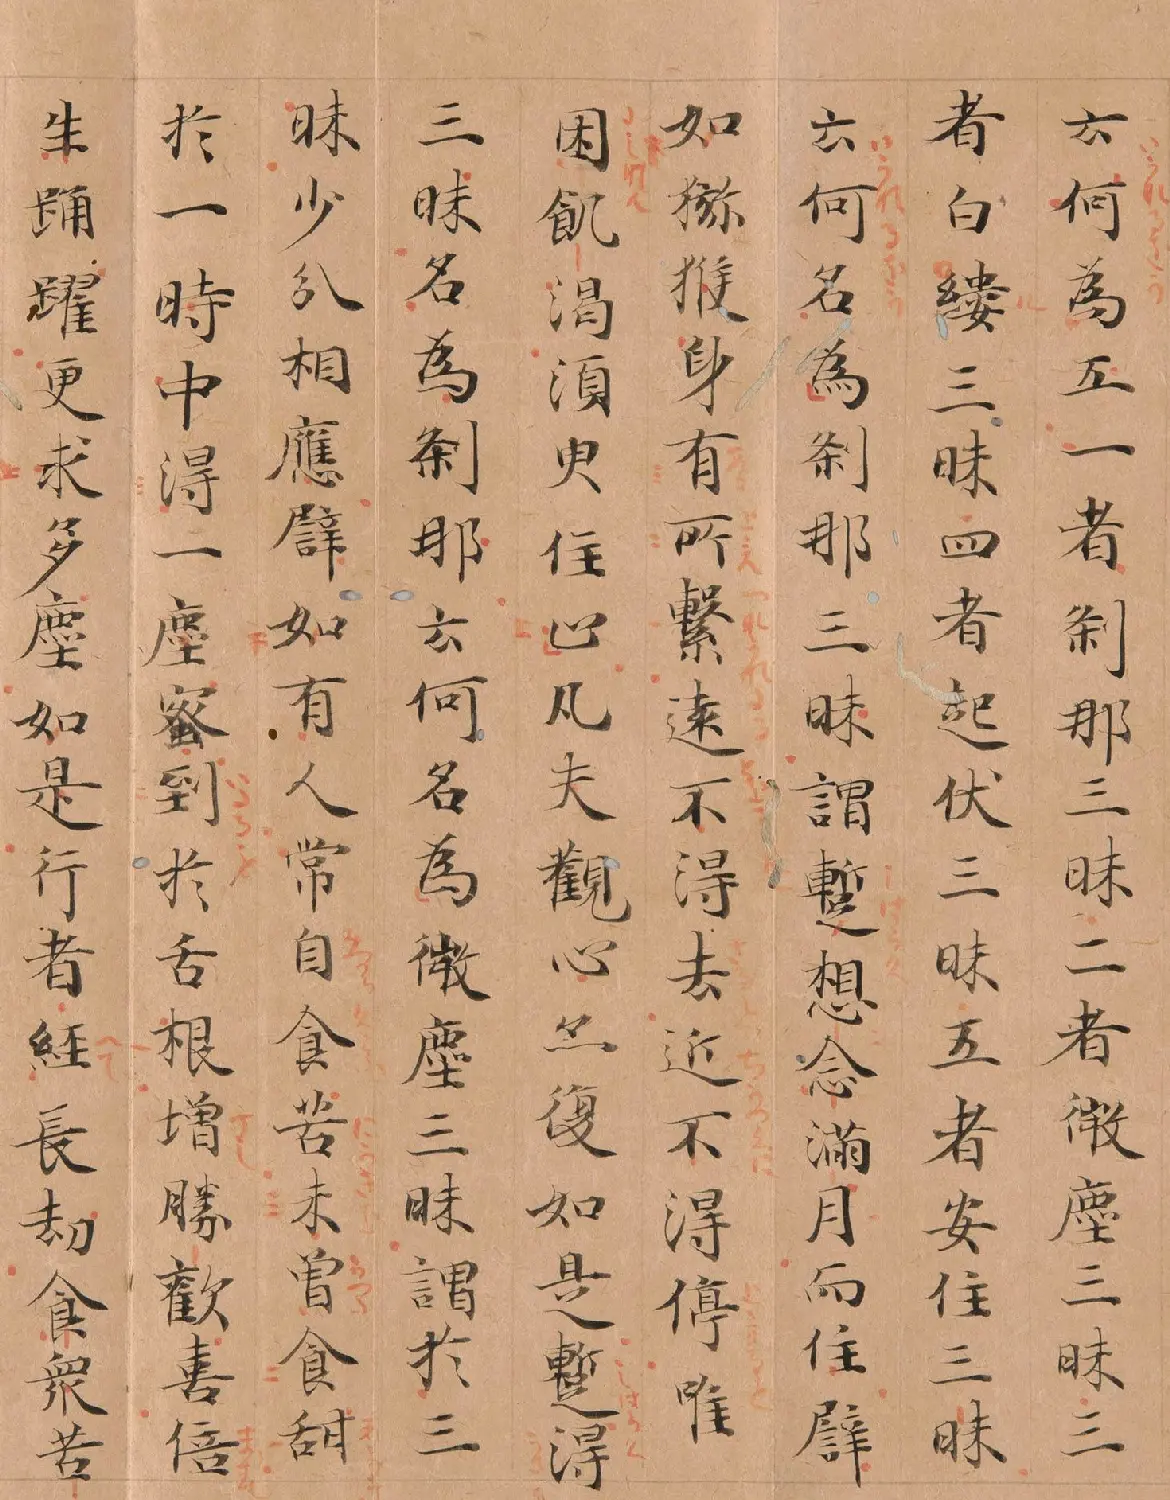 云何為五一者剎那三昧二者微塵三昧三
者白縷三昧四者起伏三昧五者安住三昧
云何名為剎那三昧謂暫想念滿月而住譬
如獼猴身有所繫遠不得去近不得停唯
困飢渴須臾住止凡夫觀心亦復如是暫得
三昧名為剎那云何名為微塵三昧謂於三
昧少分相應譬如有人常自食苦未曾食甜
於一時中得一塵蜜到於舌根增勝歡喜倍
生踊躍更求多塵如是行者經長劫食眾苦